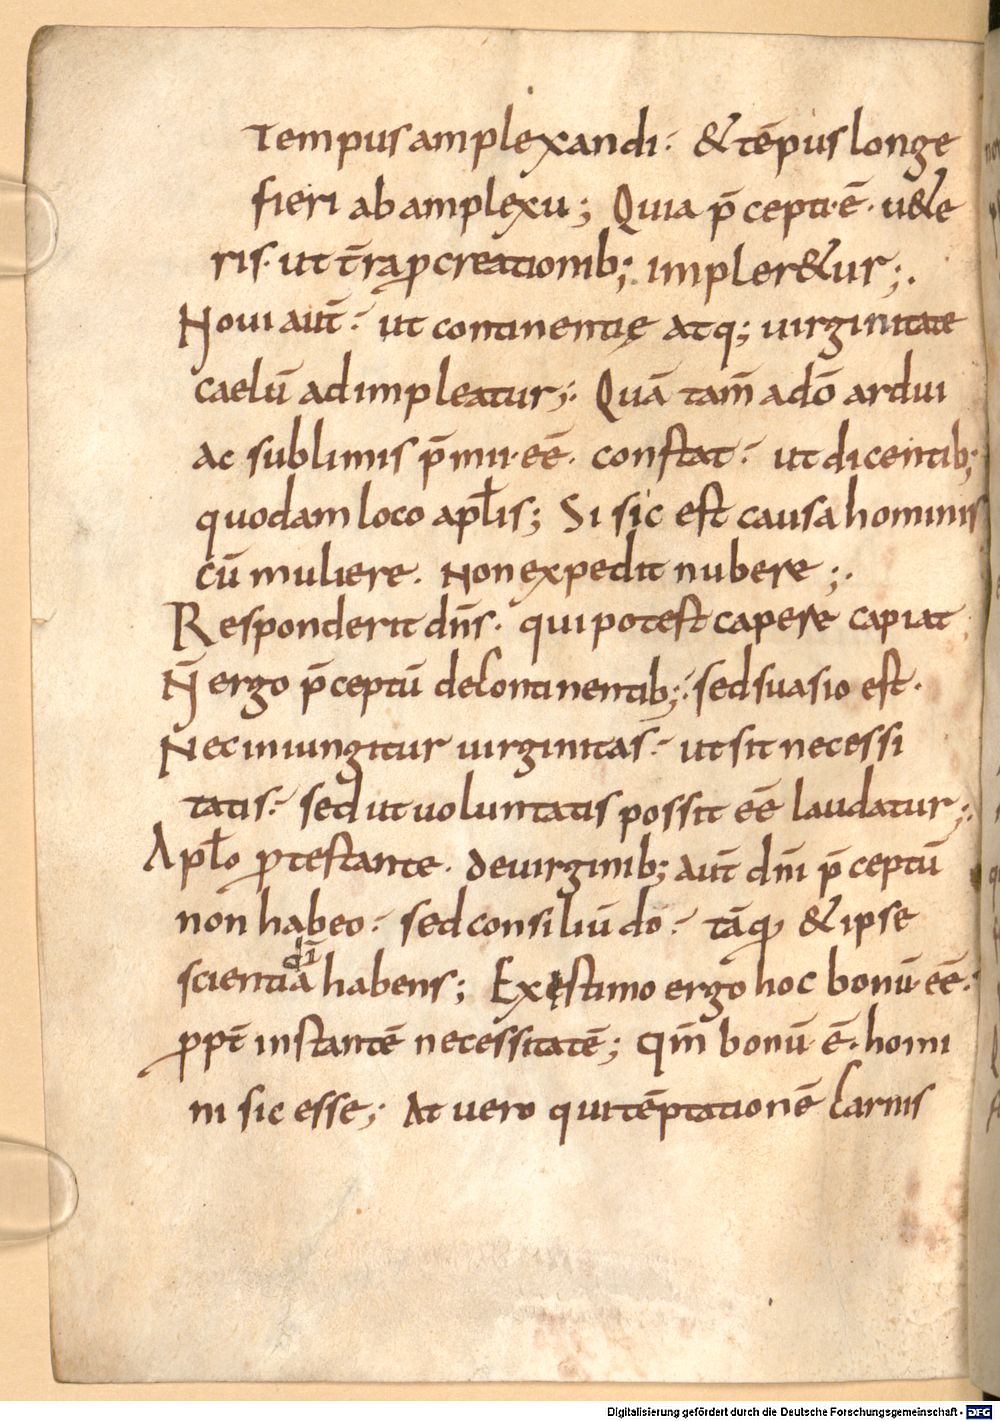 tempus amplexandi· & tēpus longe
fieri ab amplexu; Quia p̄cepti·ē· u&e
ris· ut t̄ra ꝓcreationib; impler&ur;·
Noui aut̄· ut continentię atq; uirginitate
caelū adimpleatur;· Quā tam̄ adō ardui
ac sublimis p̄mii·eē· constat· ut dicentib;
quodam loco apl̄is; Si sic est causa hominis
cū muliere· Non expedit nubere;·
Responderit dn̄s· qui potest capere capiat
N̄ ergo p̄ceptū de continentib;· sed suasio est·
Nec iniungitur uirginitas· ut sit necessi
tatis· sed ut uoluntatis possit eē laudatur;·
Apl̄o ꝓtestante· de uirginib; aut̄ dn̄i p̄ceptū
non habeo· sed consiliū do· tāqꝫ & ipse
scientiā dī habens; Exęstimo ergo hoc bonū·eē·
ꝓpt̄ instantē necessitatē; qm̄ bonū·ē·homi
ni sic esse; At uero qui tēptationē carnis
Digitalisierung gefördert durch die Deutsche Forschungsgemeinschaft - DFG